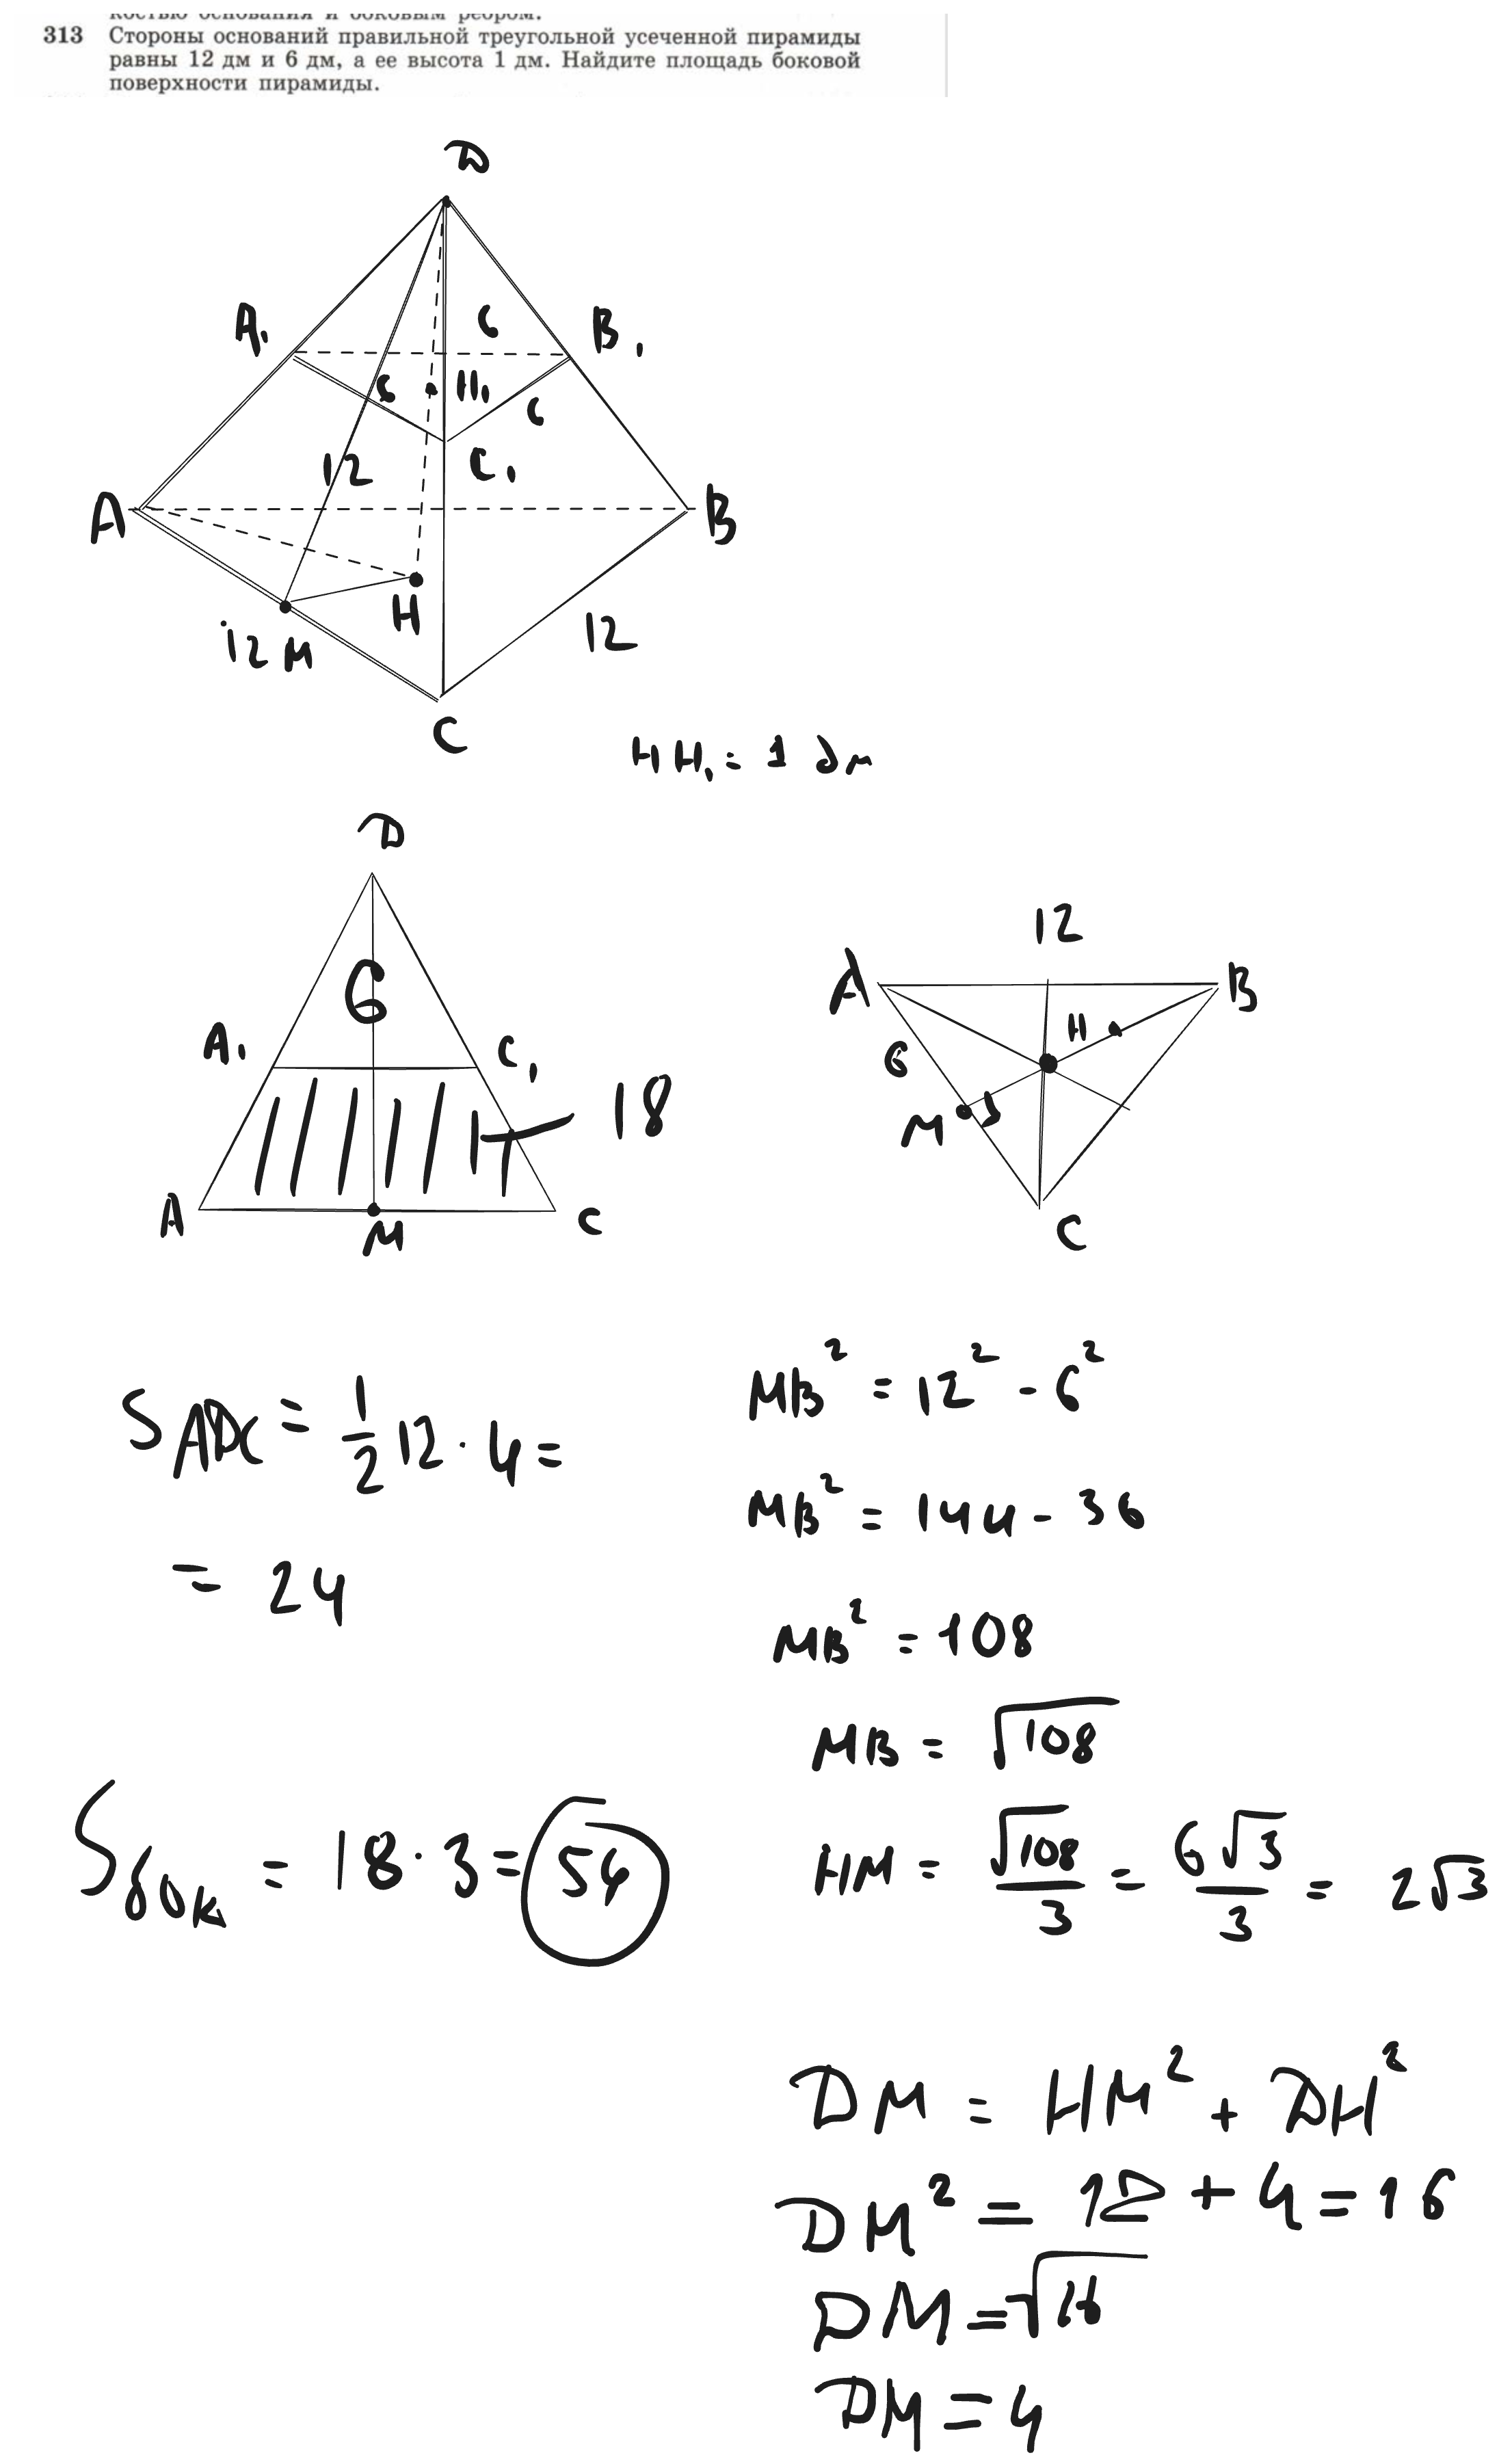 костью основания и боковым ребром.
313 Стороны оснований правильной треугольной усеченной пирамиды
равны 12 дм и 6 дм, а ее высота 1 дм. Найдите площадь боковой
поверхности пирамиды.
D
A₁ 6 B₁
6 H₁ 6
12 C₁
A B
H
12 M 12
C
HH₁ = 1 дм
D
6
A₁ C₁
18
A M C
12
A B
H
6
M
C
S ADC = 1/2 12 · 4 =
= 24
S бок = 18 · 3 = 54
MB² = 12² - 6²
MB² = 144 - 36
MB² = 108
MB = √108
HM = √108/3 = 6√3/3 = 2√3
DM = HM² + DH²
DM² = 12 + 4 = 16
DM = √16
DM = 4